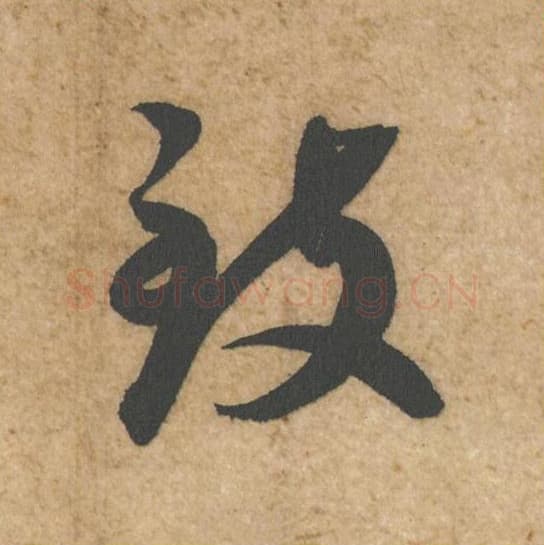 設
Shufawang.CN